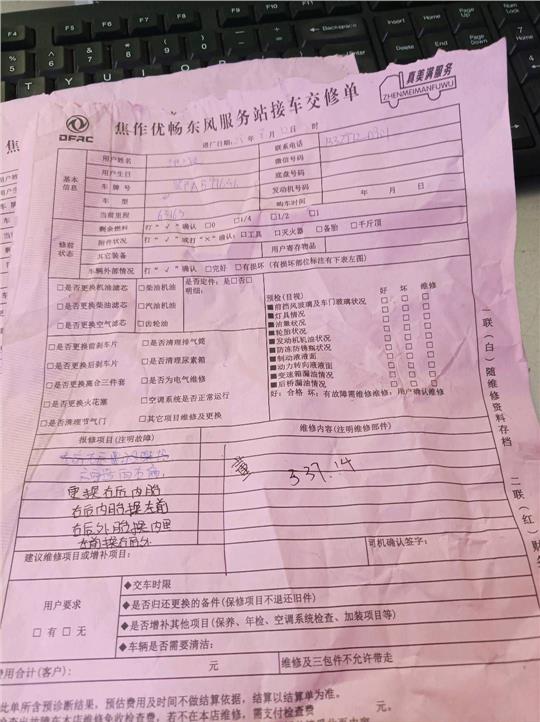 焦
DFAC
焦作优畅东风服务站接车交修单
真美满服务
ZHENMEIMANFUWU
进厂日期: 年 月 日 时
基本信息
用户姓名
联系电话
用户生日
微信号码
车牌号
底盘号码
车 型
发动机号码
当前里程 63163
购车时间 年 月 日
修前状态
剩余燃料 打“√”确认 □0 □1/4 □1/2 □1
附件状况 打“√”或打“×”确认: □工具 □灭火器 □备胎 □千斤顶
其它装备
用户寄存物品
车辆外部情况 打“√”确认 □完好 □有损坏（有损坏部位标注有下表左图）
□是否更换机油滤芯 □柴油机油 是否定件: 是□否□
明细:
□是否更换柴油滤芯 □汽油机油
□是否更换空气滤芯 □齿轮油
□是否更换前刹车片 □是否清理排气筒
□是否更换后刹车片 □是否清理尿素箱
□是否更换离合三件套 □是否为电气维修
□是否更换火花塞 □空调系统是否正常运行
□是否清理节气门 □其它项目维修及更换
预检(目视) 好 坏 维修
■前挡风玻璃及车门玻璃状况 □ □ □
■灯具情况 □ □ □
■油量状况 □ □ □
■轮胎状况 □ □ □
■发动机机油状况 □ □ □
■防冻防锈瓶状况 □ □ □
■制动液液面 □ □ □
■动力转向液液面 □ □ □
■变速箱漏油情况 □ □ □
■后桥漏油情况 □ □ □
好: 合格 坏: 有故障需维修维修: 用户确认维修
报修项目(注明故障)
维修内容(注明维修部件)
更换右后内胎
337.14
右后内胎换左前
右后外胎换内里
左前换右后外
建议维修项目或增补项目:
司机确认签字:
用户要求
□有 □无
◆交车时限
◆是否归还更换的备件(保修项目不退还旧件)
◆是否增补其他项目(保养、年检、空调系统检查、加装项目等)
◆车辆是否需要清洁:
费用合计(客户): 元
维修及三包件不允许带走
此单所含预诊断结果，预估费用及时间不做结算依据，结算以结算单为准。
若不在本店维修，需支付检查费 元。
一联(白)随维修资料存档
二联(红)财务